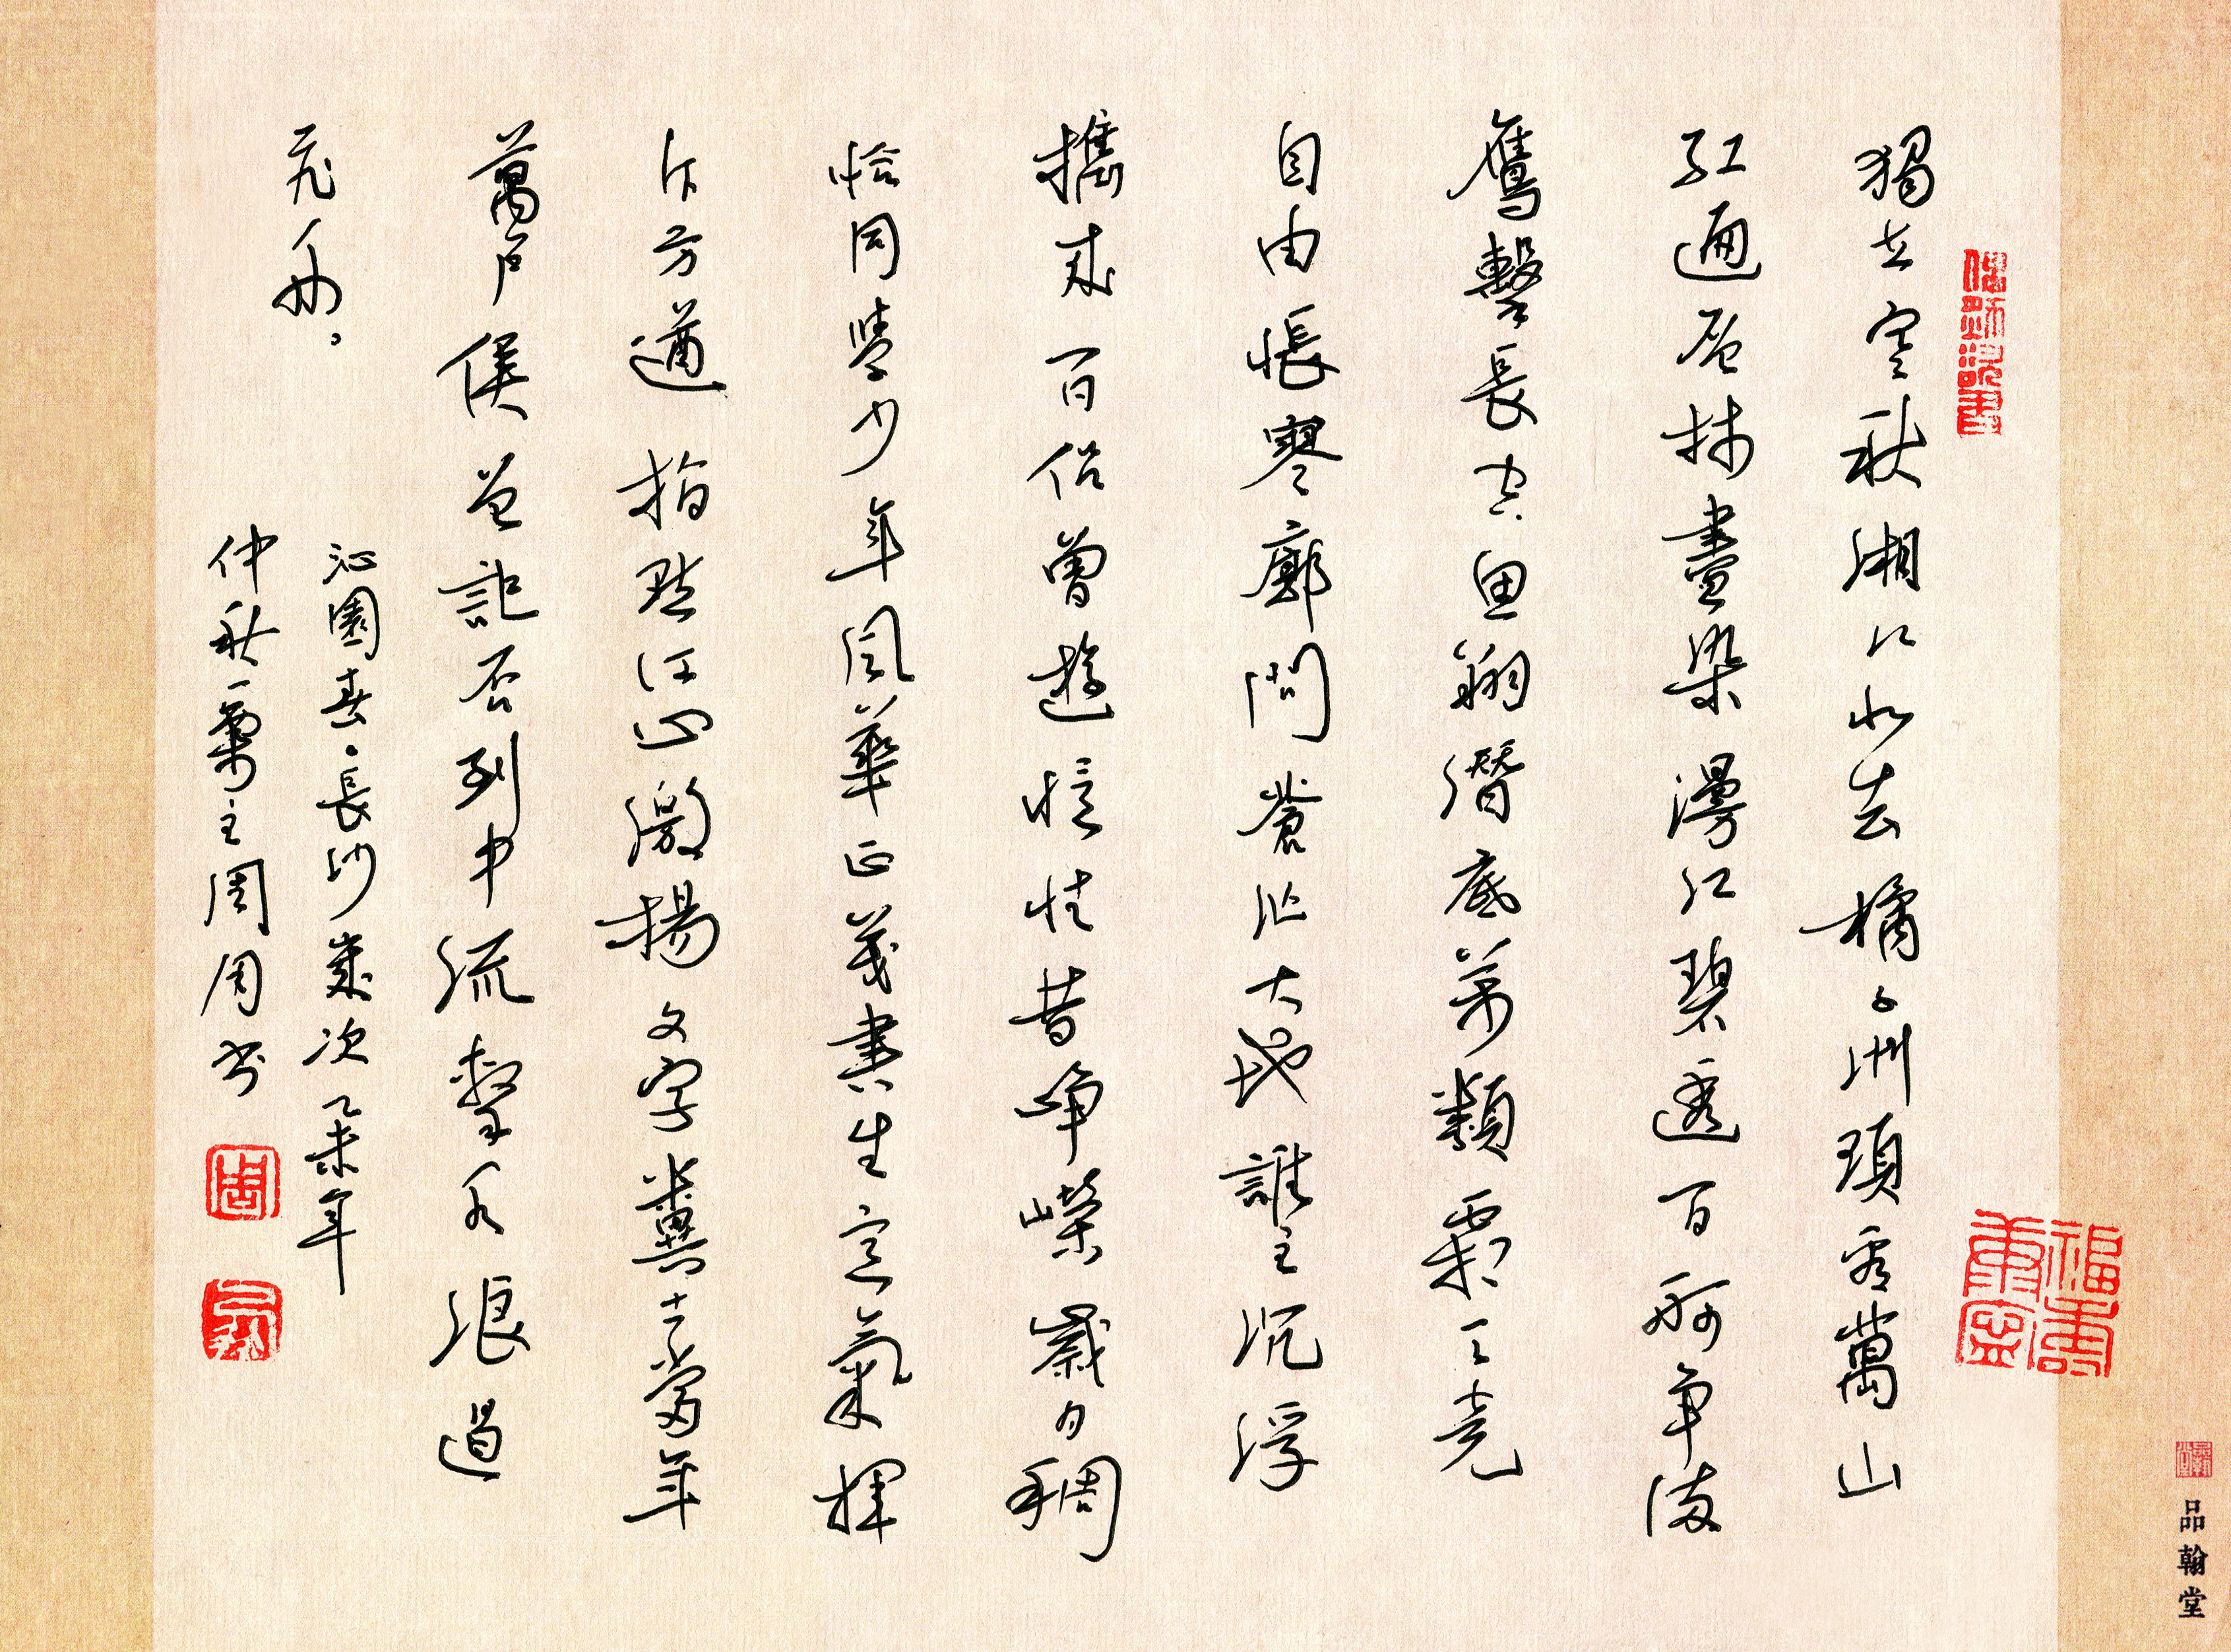 獨立寒秋湘江北去橘子洲頭看萬山
紅遍層林盡染漫江碧透百舸争流
鷹擊長空魚翔潛底萬類霜天竞
自由悵寥廓問蒼茫大地誰主沉浮
攜来百侣曾遊憶往昔峥嶸歲月稠
恰同學少年風華正茂書生意氣揮
斥方遒指點江山激揚文字糞土當年
萬户侯曾記否到中流擊水浪遏
飛舟。
沁園春·長沙歲次乙未年
仲秋主周周书
周
福壽康寧
品翰堂